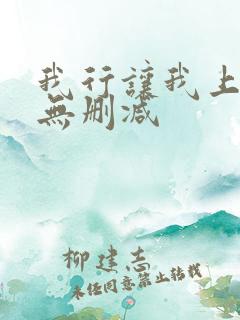 我行讓我上
無刪減
柳建志
未经同意禁止转载